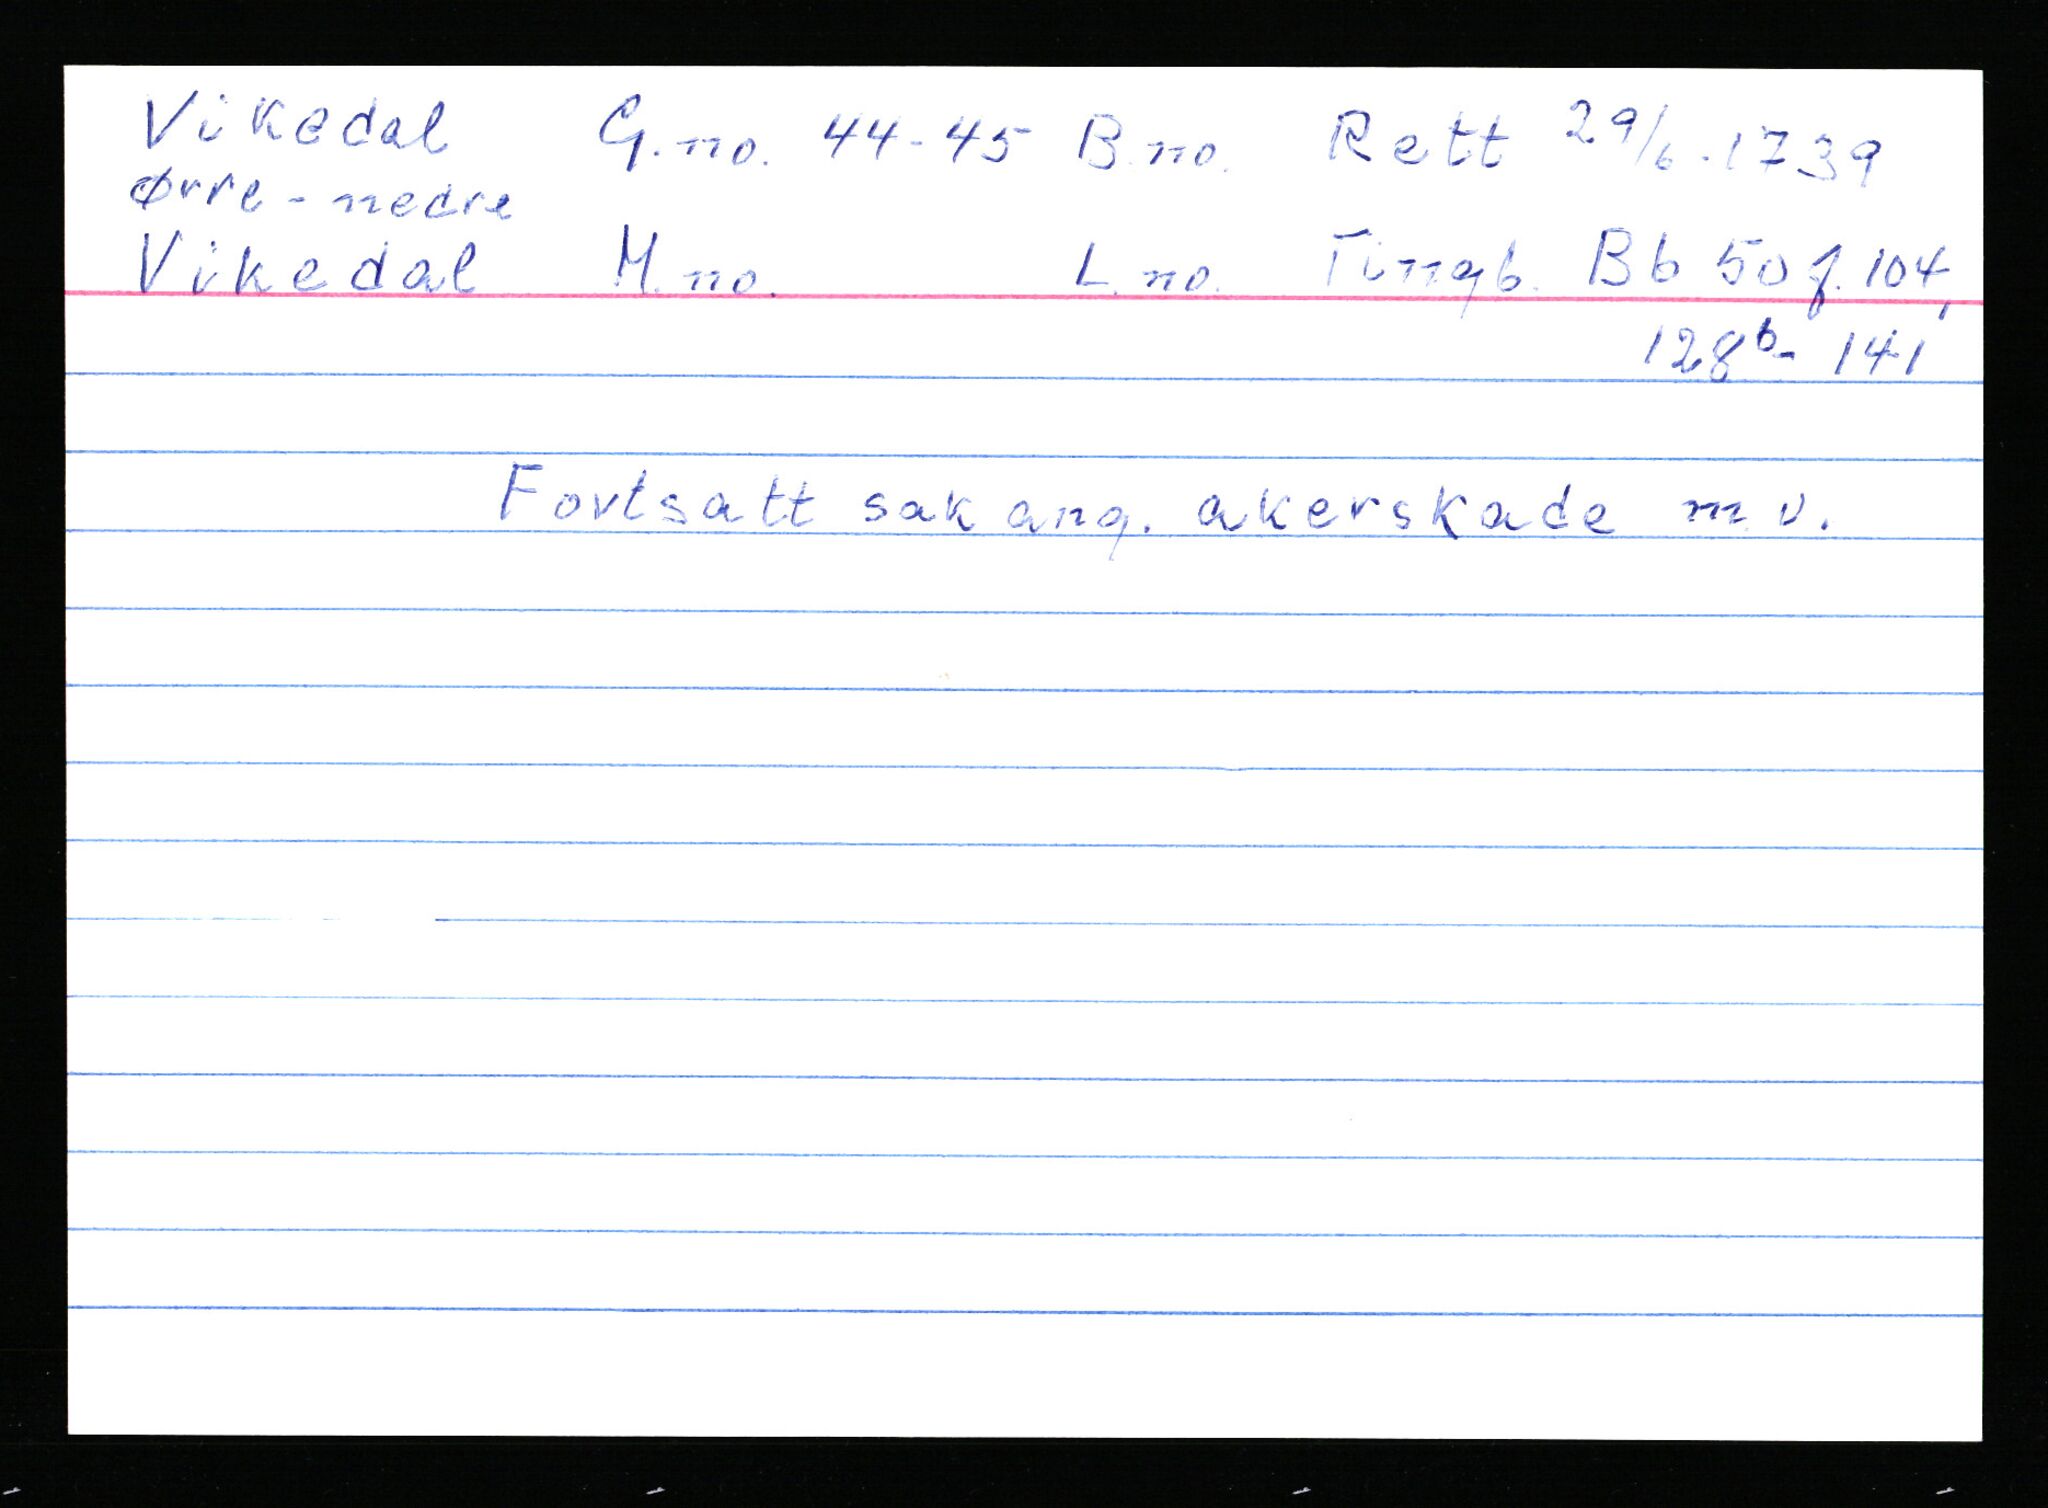 Vikedal G.no. 44-45 B.no. Rett 29/6-1739
Ørre - nedre
Vikedal M.no. L.no. Tingb. Bb 50 f. 104,
128b- 141
Fortsatt sak ang. akerskade m.v.